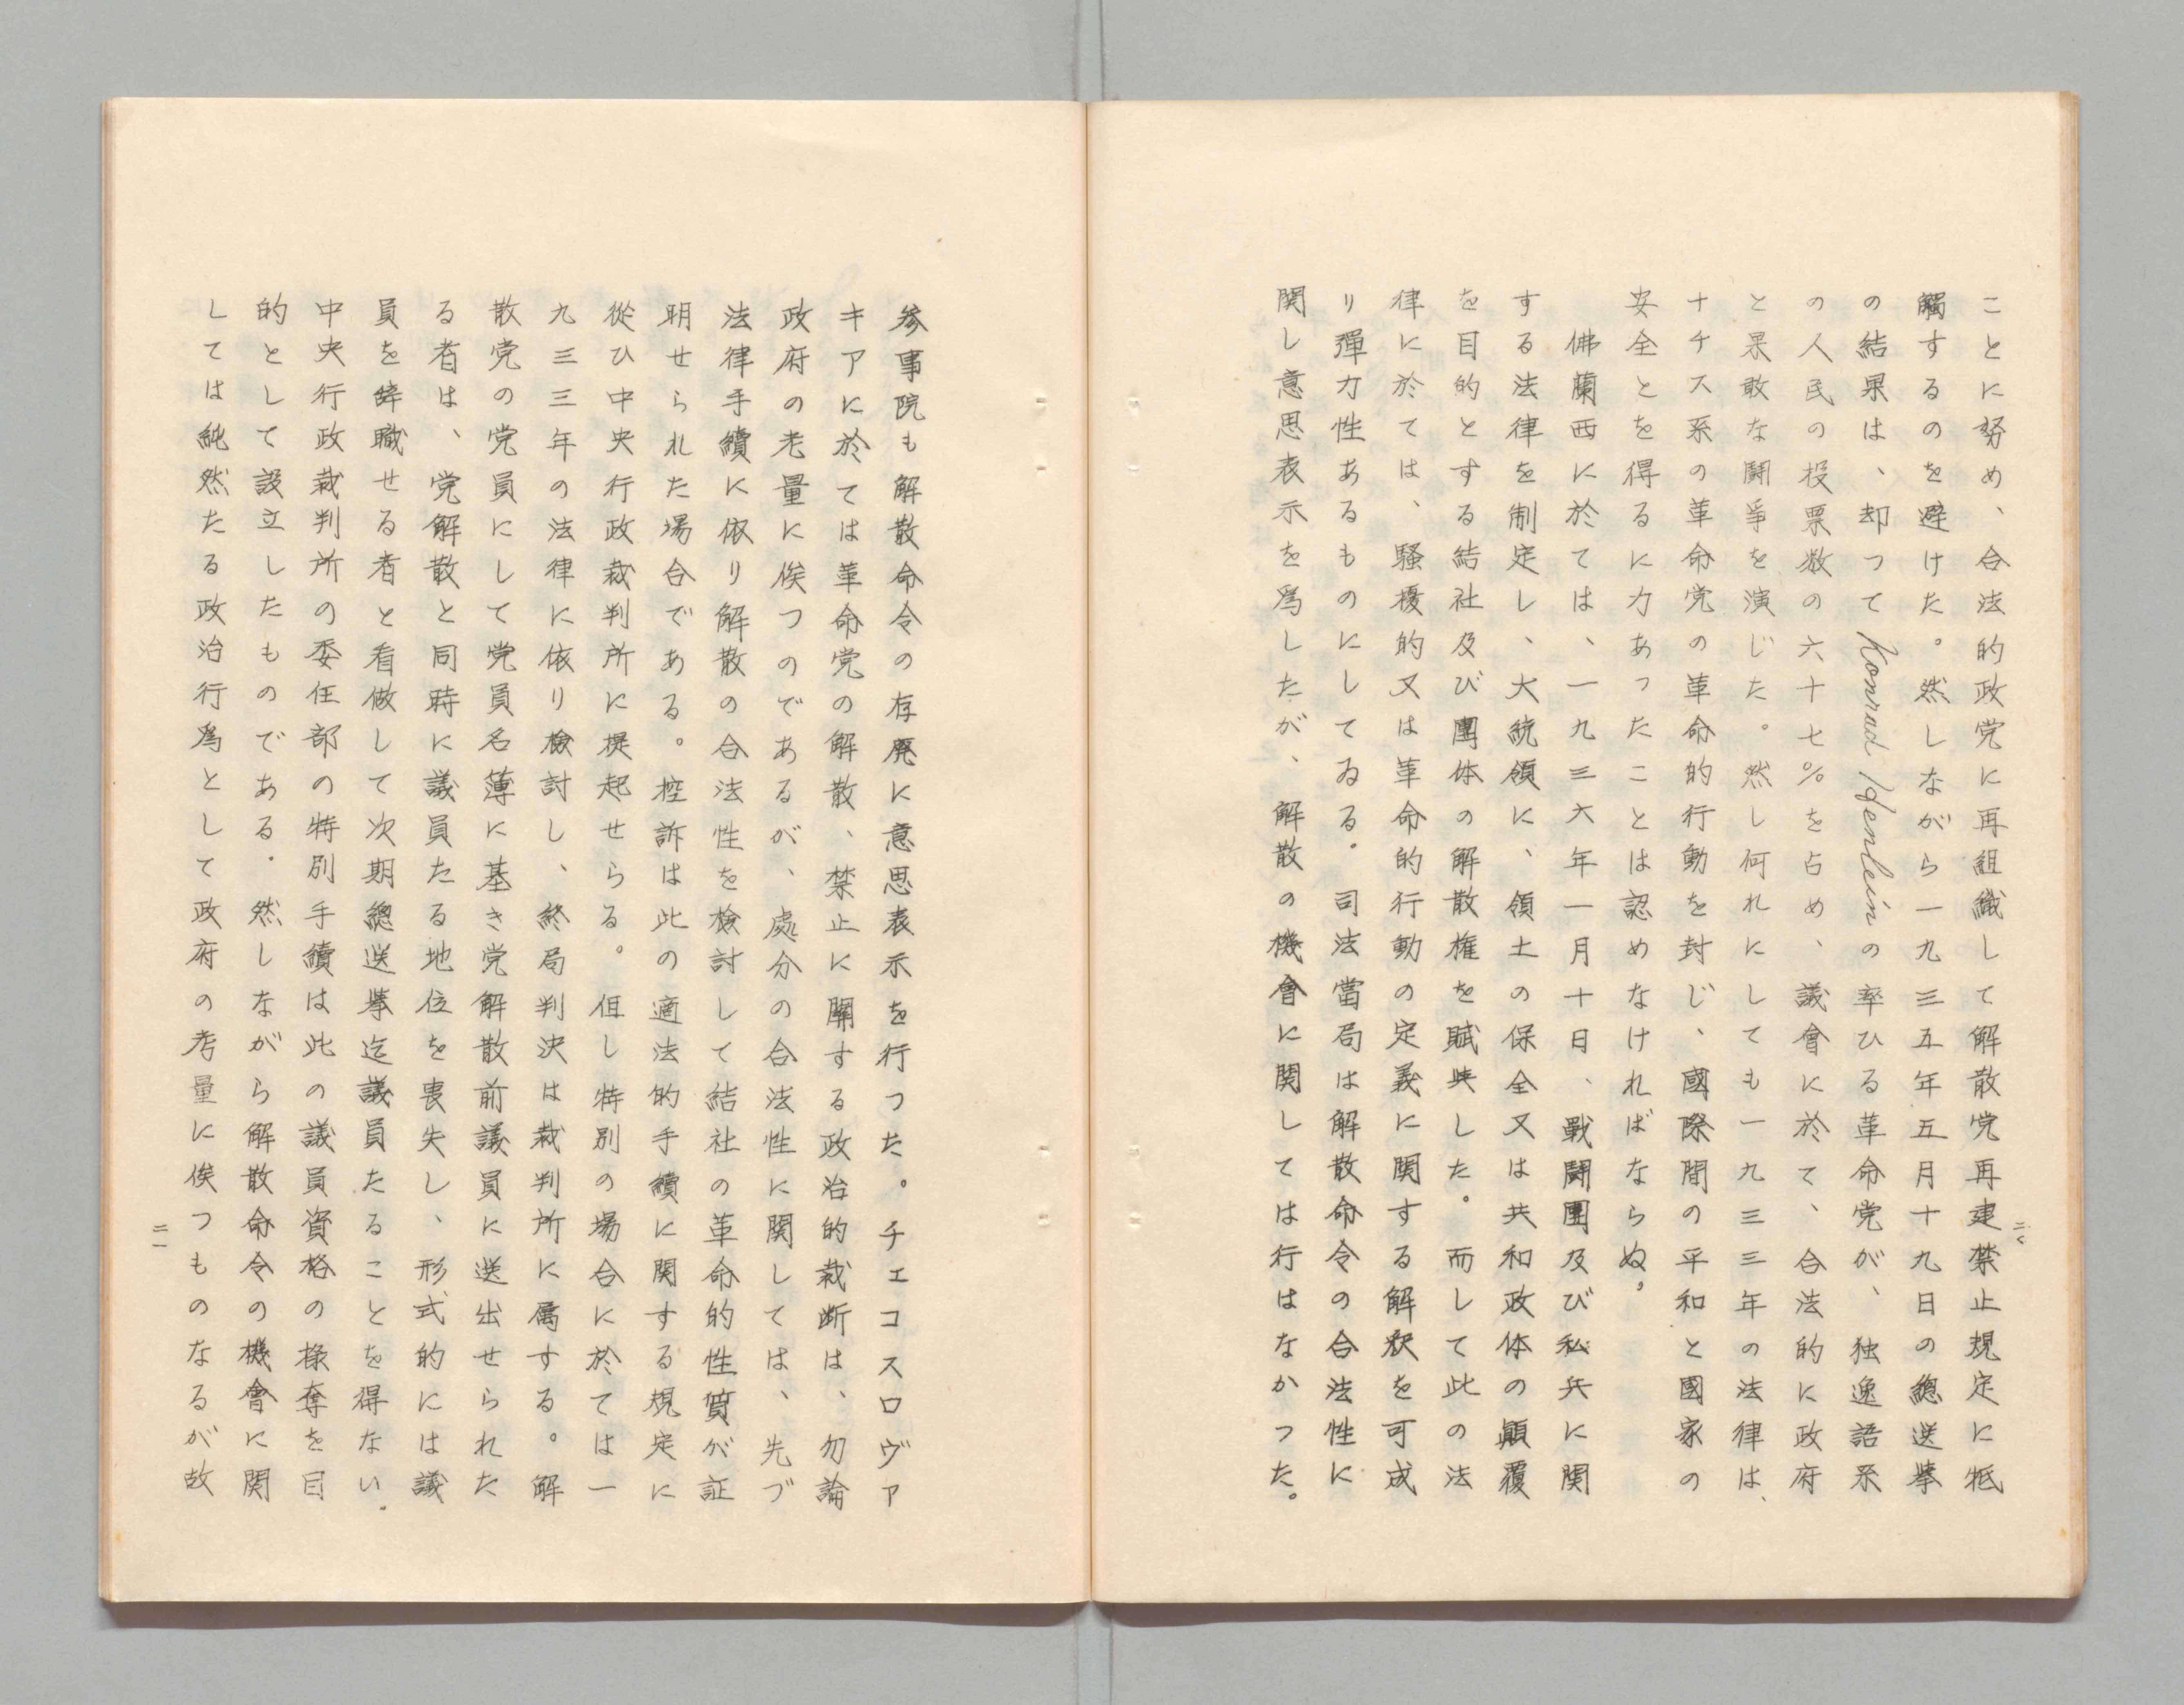 ことに努め、合法的政党に再組織して解散党再建禁止規定に牴
觸するのを避けた。然しながら一九三五年五月十九日の總选挙
の結果は、却って Konrad Henlein の率ひる革命党が、独逸語系
の人民の投票数の六十七%を占め、議會に於て、合法的に政府
と果敢な闘爭を演じた。然し何れにしても一九三三年の法律は、
ナチス系の革命党の革命的行動を封じ、國際間の平和と國家の
安全とを得るに力あったことは認めなければならぬ。
佛蘭西に於ては、一九三六年一月十日、戰闘團及び私兵に関
する法律を制定し、大統領に、領土の保全又は共和政体の顚覆
を目的とする結社及び團体の解散権を賦與した。而して此の法
律に於ては、騒擾的又は革命的行動の定義に関する解釈を可成
り彈力性あるものにしてゐる。司法當局は解散命令の合法性に
関し意思表示を爲したが、解散の機會に関しては行はなかつた。
二〇
参事院も解散命令の存廃に意思表示を行つた。チェコスロヴァ
キアに於ては革命党の解散、禁止に關する政治的裁断は、勿論
政府の考量に俟つのであるが、處分の合法性に関しては、先づ
法律手續に依り解散の合法性を檢討して結社の革命的性質が証
明せられた場合である。控訴は此の適法的手續に関する規定に
從ひ中央行政裁判所に提起せらる。但し特別の場合に於ては一
九三三年の法律に依り檢討し、終局判決は裁判所に属する。解
散党の党員にして党員名薄に基き党解散前議員に送出せられた
る者は、党解散と同時に議員たる地位を喪失し、形式的には議
員を辞職せる者と看做して次期總选挙迄議員たることを得ない。
中央行政裁判所の委任部の特別手續は此の議員資格の褫奪を目
的として設立したものである。然しながら解散命令の機會に関
しては純然たる政治行爲として政府の考量に俟つものなるが故
二一